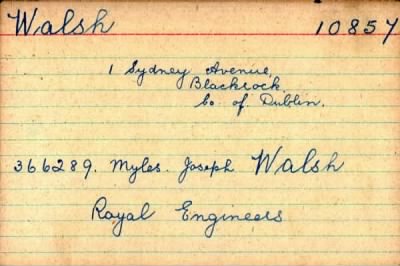 Walsh 10857
1 Sydney Avenue,
Blackrock.
Co of. Dublin.
366289. Myles. Joseph Walsh
Royal Engineers